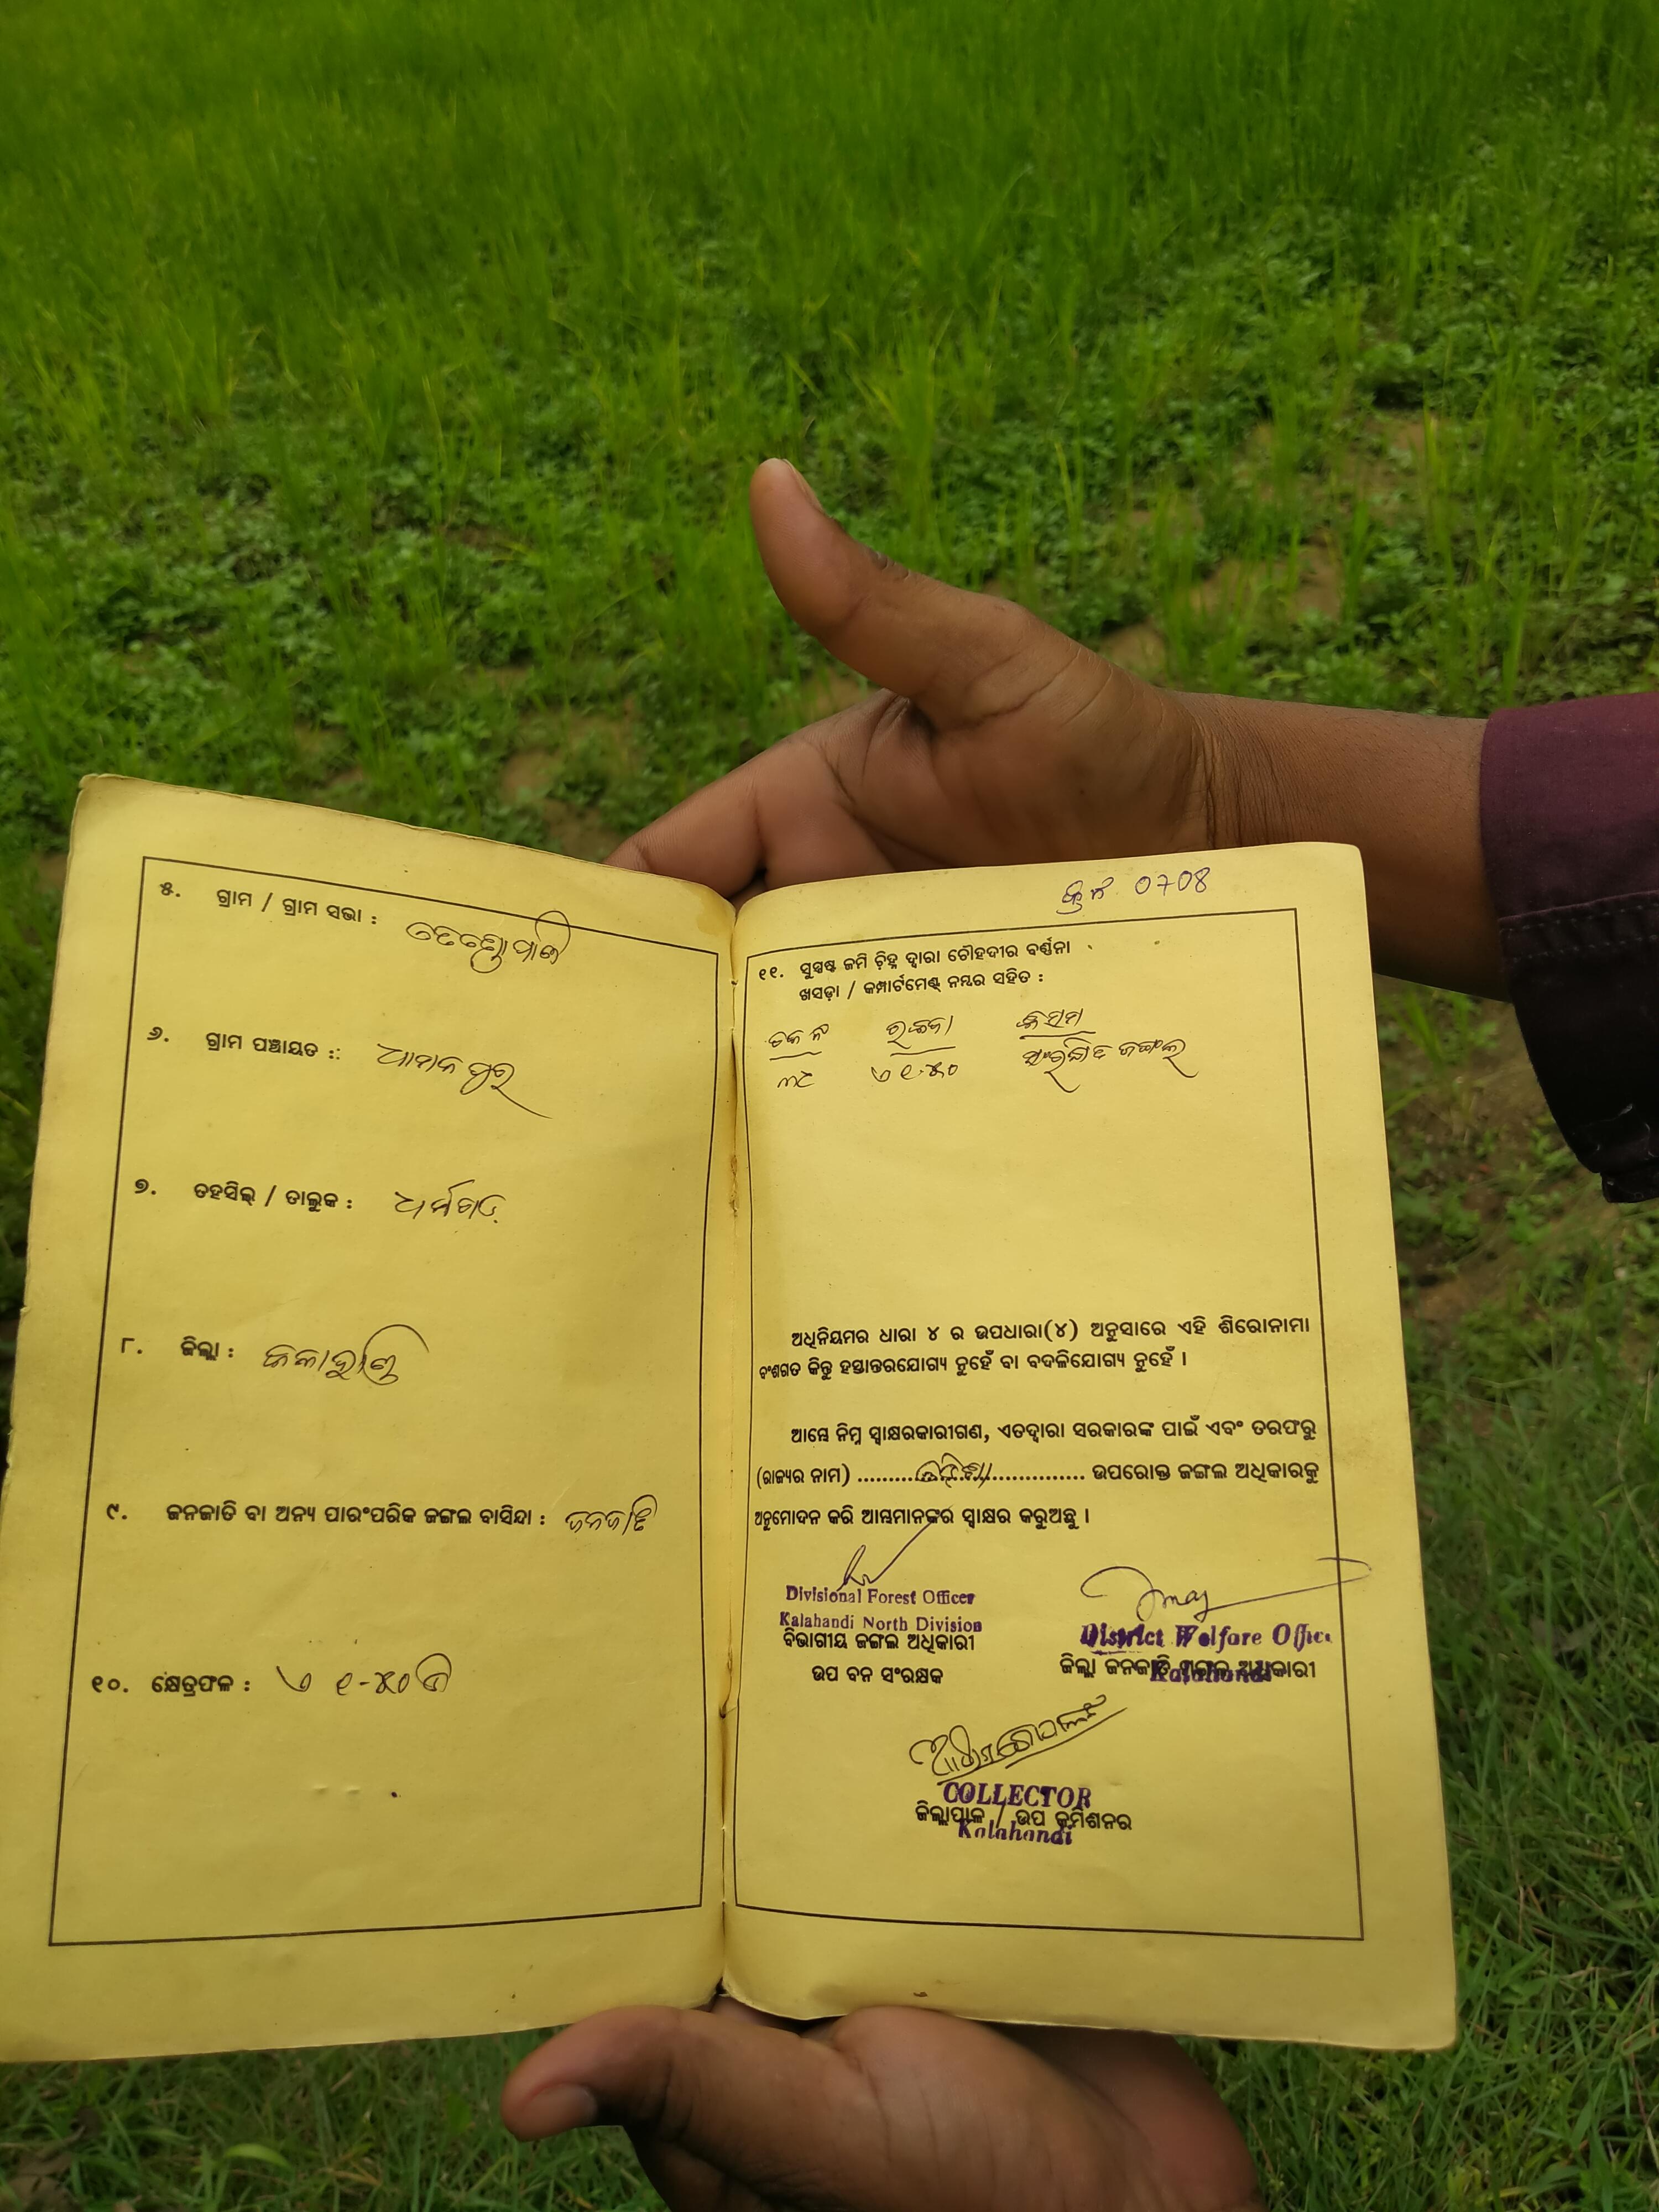 ୫. ଗ୍ରାମ / ଗ୍ରାମ ସଭା :
୬. ଗ୍ରାମ ପଞ୍ଚାୟତ :
୭. ତହସିଲ୍ / ତାଲୁକ : ଧର୍ମଗଡ଼
୮. ଜିଲ୍ଲା : କଳାହାଣ୍ଡି
୯. ଜନଜାତି ବା ଅନ୍ୟ ପାରଂପରିକ ଜଙ୍ଗଲ ବାସିନ୍ଦା : ଜନଜାତି
୧୦. କ୍ଷେତ୍ରଫଳ : ଏ ୧-୫୦ ଡି
0708
୧୧. ସୁସ୍ପଷ୍ଟ ଜମି ଚ଼ିହ୍ନ ଦ୍ୱାରା ଚୌହଦୀର ବର୍ଣ୍ଣନା
ଖସଡ଼ା / କମ୍ପାର୍ଟମେଣ୍ଟ୍ ନମ୍ବର ସହିତ :
ରକବା କିସମ
ଏ ୧.୫୦ ଜଙ୍ଗଲ
ଅଧିନିୟମର ଧାରା ୪ ର ଉପଧାରା(୪) ଅନୁସାରେ ଏହି ଶିରୋନାମା
ବଂଶଗତ କିନ୍ତୁ ହସ୍ତାନ୍ତରଯୋଗ୍ୟ ନୁହେଁ ବା ବଦଳିଯୋଗ୍ୟ ନୁହେଁ ।
ଆମ୍ଭେ ନିମ୍ନ ସ୍ୱାକ୍ଷରକାରୀଗଣ, ଏତଦ୍ୱାରା ସରକାରଙ୍କ ପାଇଁ ଏବଂ ତରଫରୁ
(ରାଜ୍ୟର ନାମ) .........ଓଡ଼ିଶା............... ଉପରୋକ୍ତ ଜଙ୍ଗଲ ଅଧିକାରକୁ
ଅନୁମୋଦନ କରି ଆମ୍ଭମାନଙ୍କର ସ୍ୱାକ୍ଷର କରୁଅଛୁ ।
Divisional Forest Officer
Kalahandi North Division
ବିଭାଗୀୟ ଜଙ୍ଗଲ ଅଧିକାରୀ
ଉପ ବନ ସଂରକ୍ଷକ
District Welfare Officer
ଜିଲ୍ଲା ଜନଜାତି ମଙ୍ଗଲ ଅଧିକାରୀ
Kalahandi
COLLECTOR
ଜିଲ୍ଲାପାଳ / ଉପ କମିଶନର
Kalahandi